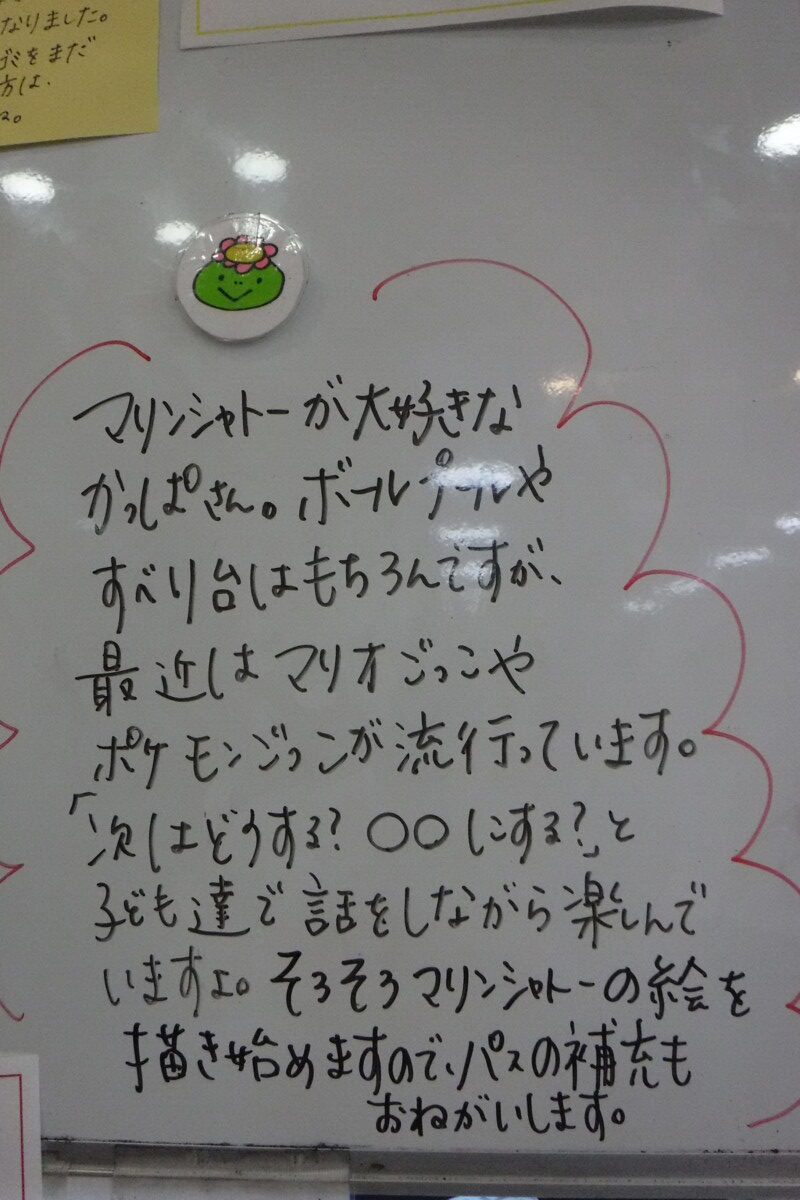 なりました。
ゴミをまだ
方は、
マリンシャトーが大好きな
かっぱさん。ボールプールや
すべり台はもちろんですが、
最近はマリオごっこや
ポケモンごっこが流行っています。
「次はどうする?○○にする?」と
子ども達で話をしながら楽しんで
いますよ。そろそろマリンシャトーの絵を
描き始めますので、パスの補充も
おねがいします。